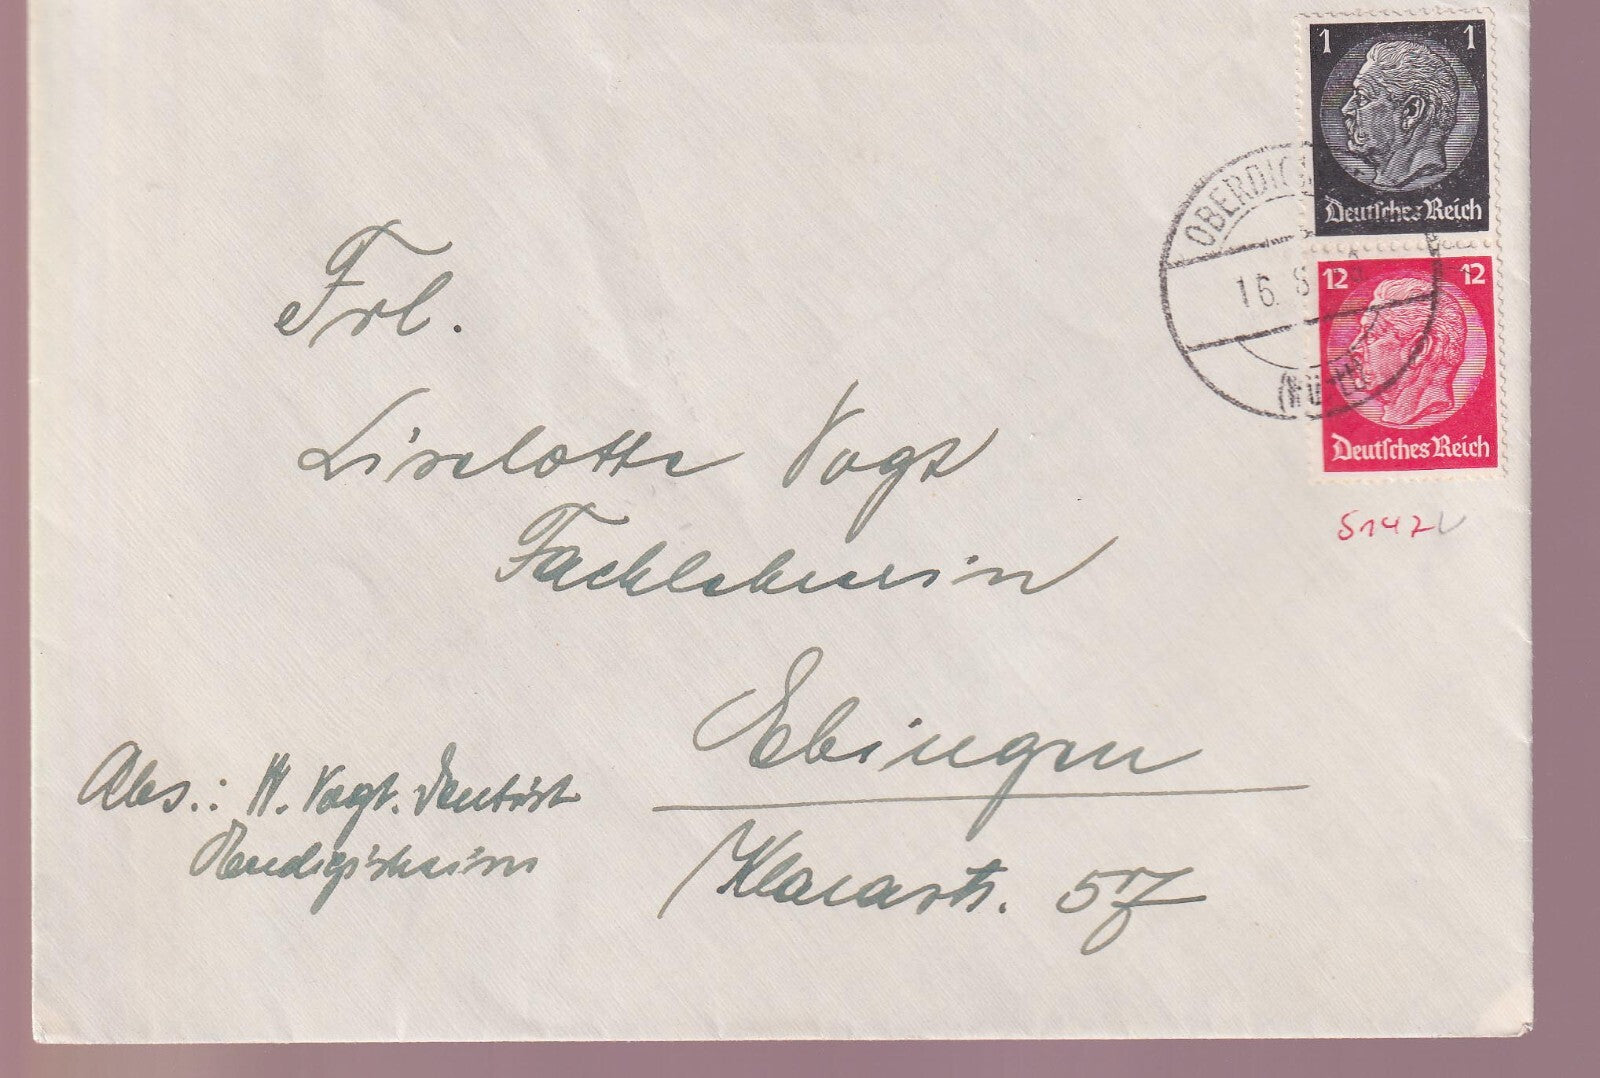 1 1
Deutsches Reich
OBERDIG
16. 8
(Württ)
12 12
Deutsches Reich
S 142
Frl.
Liselotte Vogt
Fachlehrerin
Ebingen
Klarastr. 57
Abs.: H. Vogt. Dentist